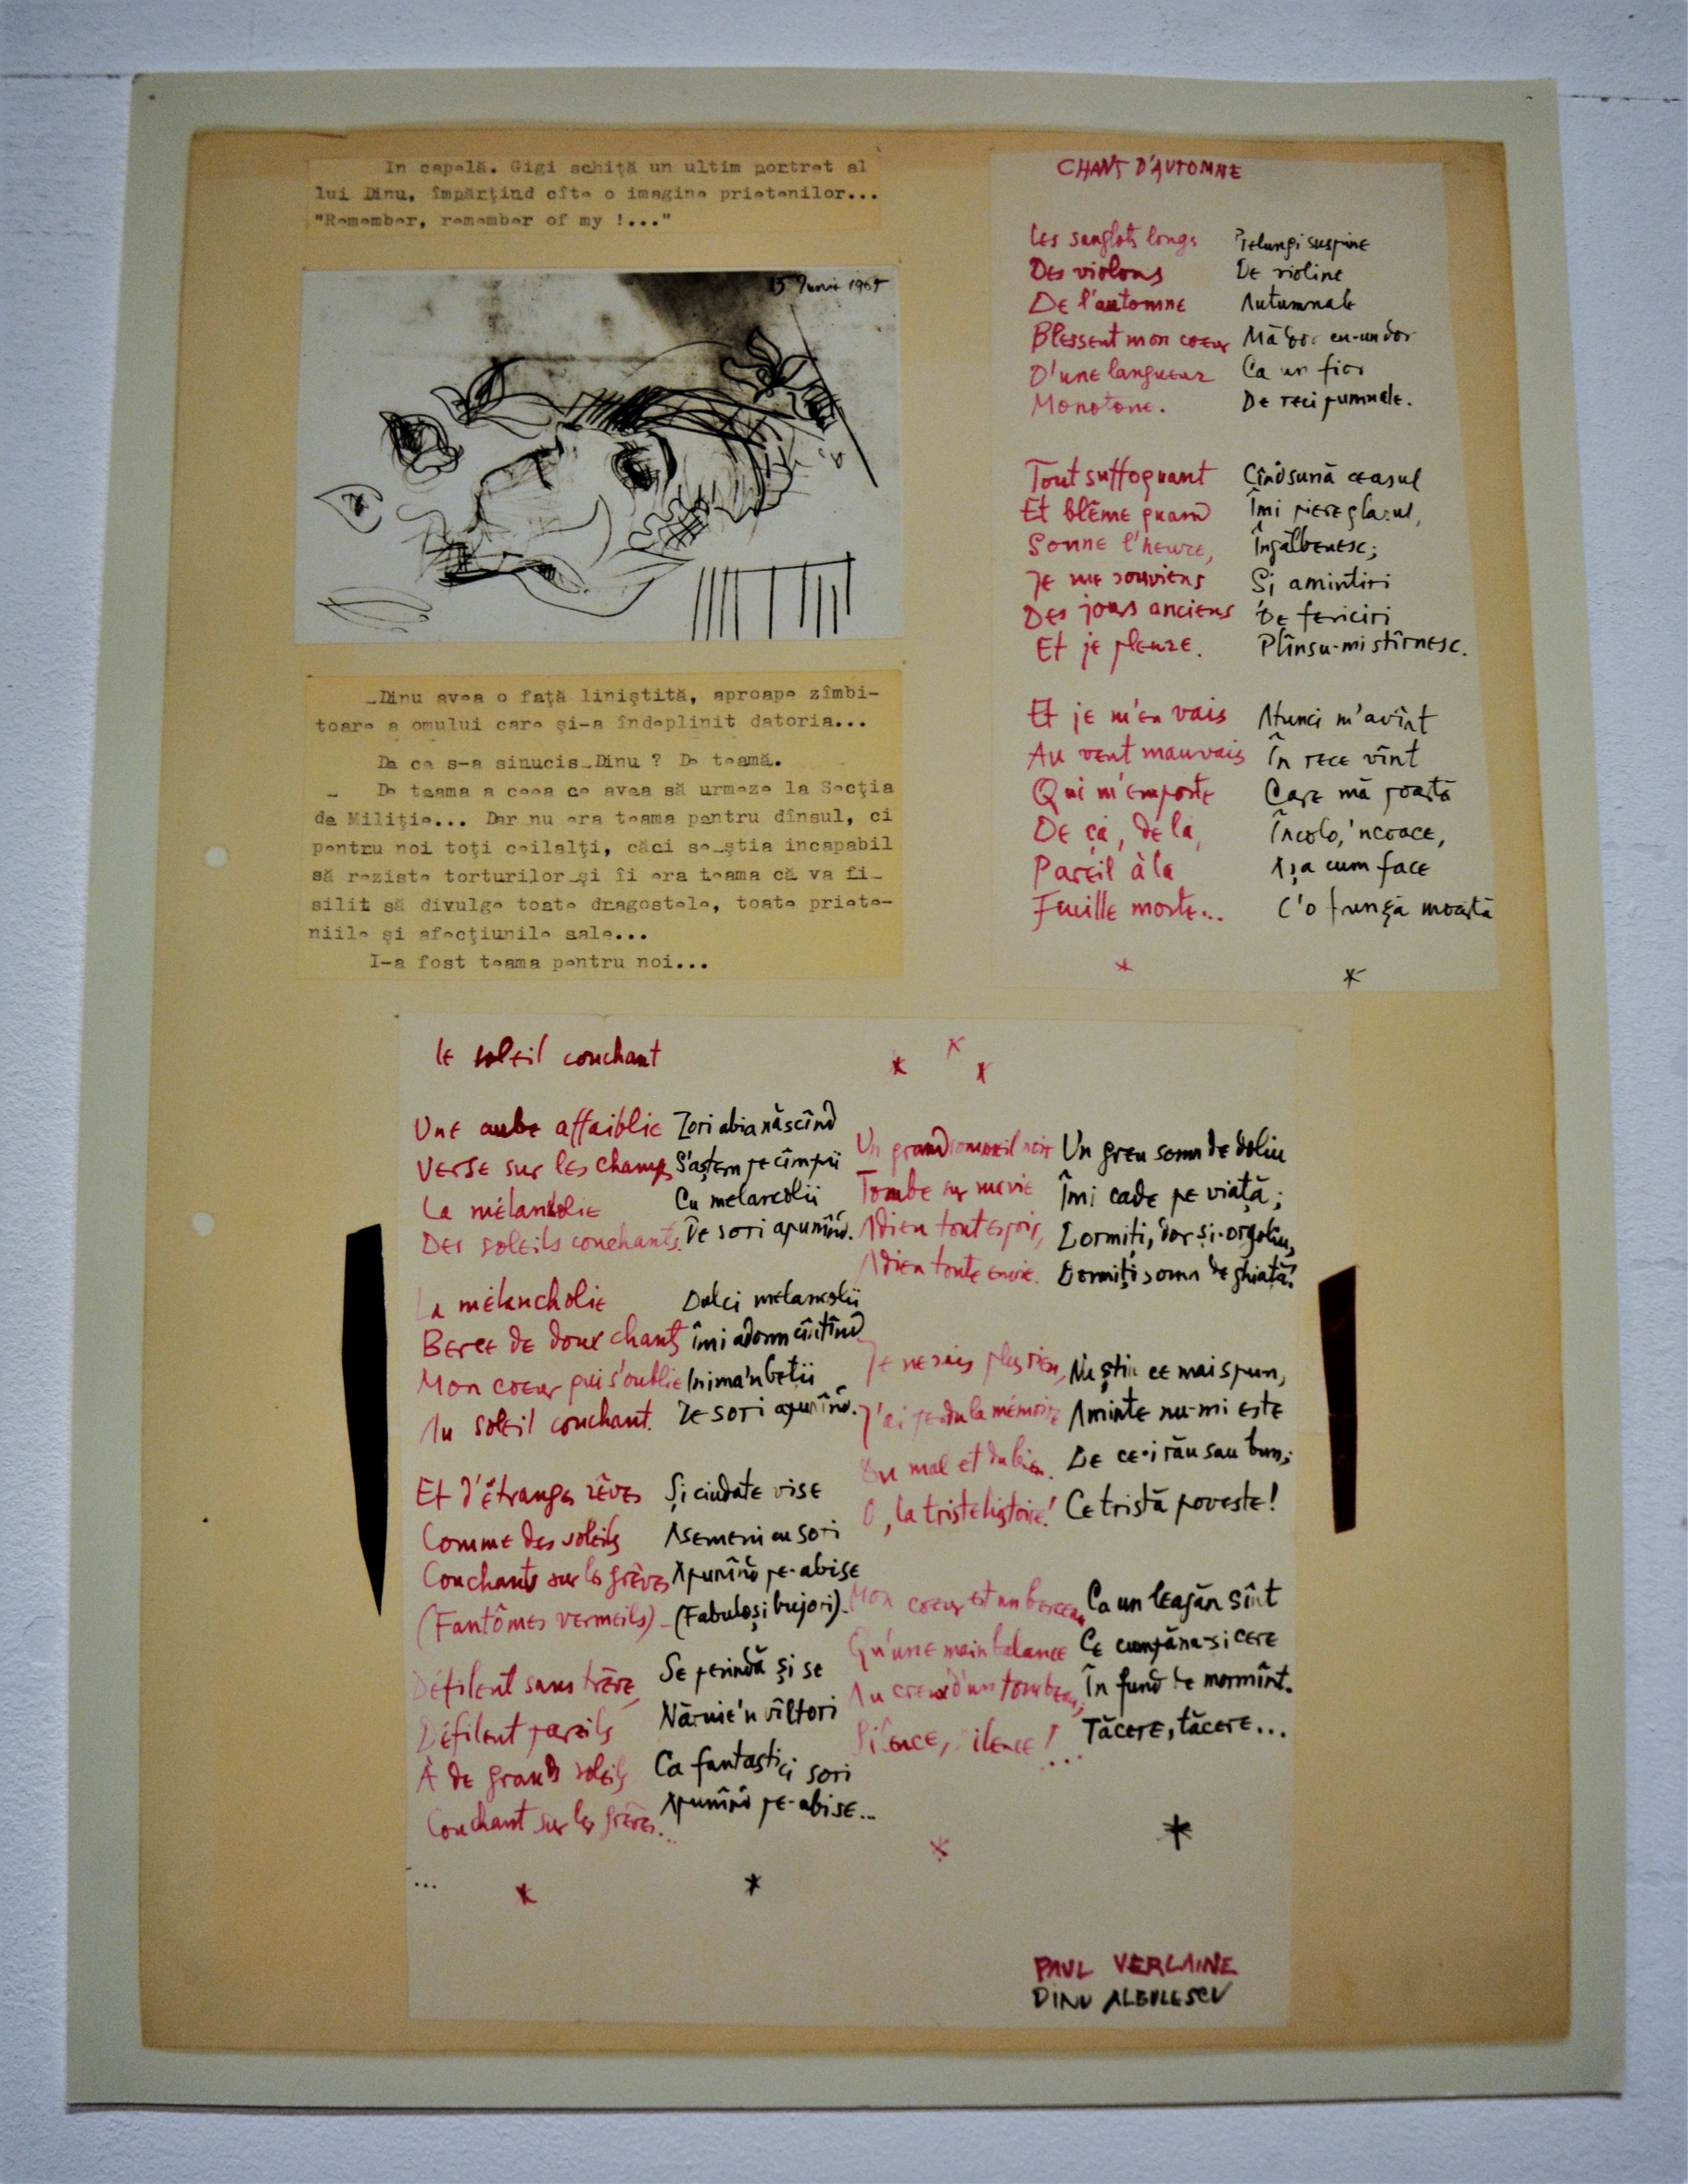 In capelă. Gigi schiţă un ultim portret al
lui Dinu, împărţind cîte o imagine prietenilor...
"Remember, remember of my !..."
15 Iunie 1965
_Dinu avea o faţă liniştită, aproape zîmbi-
toare a omului care şi-a îndeplinit datoria...
De ce s-a sinucis_Dinu ? De teamă.
_ De teama a ceea ce avea să urmeze la Secţia
de Miliţie... Dar nu era teama pentru dînsul, ci
pentru noi toţi ceilalţi, căci se_ştia incapabil
să reziste torturilor_şi îi era teama că va fi_
silit să divulge toate dragostele, toate priete-
niile şi afecţiunile sale...
I-a fost teama pentru noi...
CHANT D'AUTOMNE
Les sanglots longs
Des violons
De l'automne
Blessent mon coeur
D'une langueur
Monotone.
Tout suffoquant
Et blême quand
Sonne l'heure,
Je me souviens
Des jours anciens
Et je pleure.
Et je m'en vais
Au vent mauvais
Qui m'emporte
De ça, de là,
Pareil à la
Feuille morte...
*
Prelungi suspine
De violine
Autumnale
Mă dor cu-un dor
Ca un fior
De reci pumnale.
Cînd sună ceasul
Îmi piere glasul,
Îngălbenesc;
Şi amintiri
De fericiri
Plînsu-mi stîrnesc.
Atunci m'avînt
În rece vînt
Care mă poartă
Încolo,'ncoace,
Aşa cum face
C'o frunză moartă
*
Le soleil couchant
Une aube affaiblie
Verse sur les champs
La mélancolie
Des soleils couchants.
La mélancholie
Berce de doux chants
Mon coeur qui s'oublie
Au soleil couchant.
Et d'étranges rêves
Comme des soleils
Couchants sur les grèves
(Fantômes vermeils) -
Défilent sans trève,
Défilent pareils
À de grands soleils
Couchant sur les grèves...
...
*
Zori abia născînd
S'aştern pe cîmpii
Cu melancolii
De sori apunînd.
Dulci melancolii
Îmi adorm cîntînd
Inima'n beţii
De sori apunînd.
Şi ciudate vise
Asemeni cu sori
Apunînd pe-abise
(Fabuloşi bujori).
Se perindă şi se
Nărnie'n vîltori
Ca fantastici sori
Apunînd pe-abise...
*
* * *
Un grand sommeil noir
Tombe sur ma vie
Adieu tout espoir,
Adieu toute envie.
Je ne sais plus rien,
J'ai perdu la mémoire
Du mal et du bien.
O, la triste histoire!
Mon coeur est un berceau
Qu'une main balance
Au creux d'un tombeau;
Silence, silence!...
*
Un greu somn de doliu
Îmi cade pe viaţă;
Dormiţi, dor şi-orgoliu,
Dormiţi somn de ghiaţă!
Nu ştiu ce mai spun,
Aminte nu-mi este
De ce-i rău sau bun;
Ce tristă poveste!
Ca un leagăn sînt
Ce cumpăna-şi cere
În fund de mormînt.
Tăcere, tăcere...
*
PAUL VERLAINE
DINU ALBULESCU